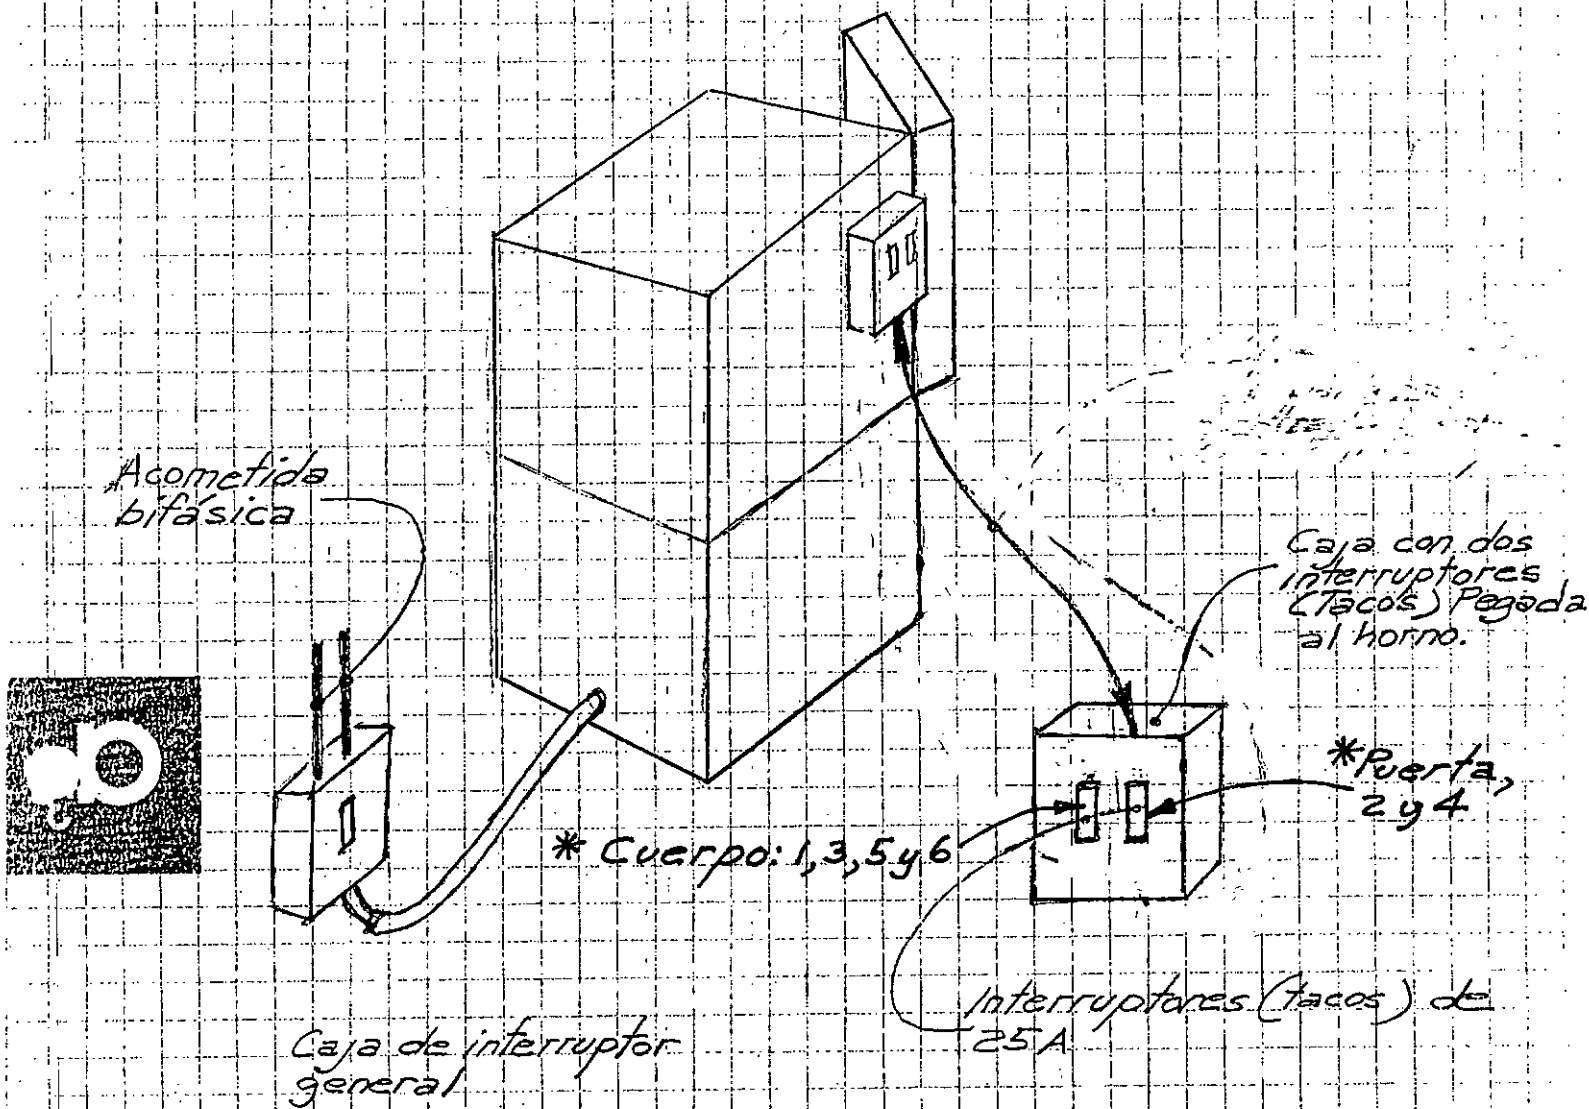 Acometida
bifásica
Caja con dos
interruptores
(Tacos) Pegada
al horno.
*Puerta,
2 y 4
* Cuerpo: 1, 3, 5 y 6
Interruptores (tacos) de
25 A
Caja de interruptor
general